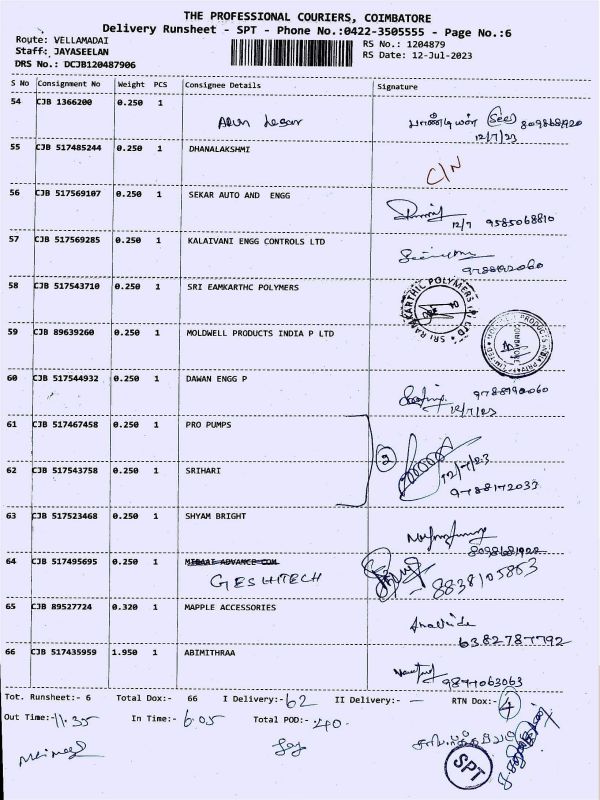 THE PROFESSIONAL COURIERS, COIMBATORE
Delivery Runsheet - SPT - Phone No.:0422-3505555 - Page No.:6
Route: VELLAMADAI RS No.: 1204879
Staff: JAYASEELAN RS Date: 12-Jul-2023
DRS No.: DCJB120487906
S No Consignment No Weight PCS Consignee Details Signature
54 CJB 1366200 0.250 1
பாண்டியன் 8098681920
12/7/23
55 CJB 517485244 0.250 1 DHANALAKSHMI
C/N
56 CJB 517569107 0.250 1 SEKAR AUTO AND ENGG
12/7 9585068810
57 CJB 517569285 0.250 1 KALAIVANI ENGG CONTROLS LTD
58 CJB 517543710 0.250 1 SRI EAMKARTHC POLYMERS
59 CJB 89639260 0.250 1 MOLDWELL PRODUCTS INDIA P LTD
COIMBATORE
60 CJB 517544932 0.250 1 DAWAN ENGG P
12/7/23
61 CJB 517467458 0.250 1 PRO PUMPS
2
62 CJB 517543758 0.250 1 SRIHARI
12/7/23
9788172033
63 CJB 517523468 0.250 1 SHYAM BRIGHT
64 CJB 517495695 0.250 1
GESHITECH 8838105863
65 CJB 89527724 0.320 1 MAPPLE ACCESSORIES
6382787792
66 CJB 517435959 1.950 1 ABIMITHRAA
9871063063
Tot. Runsheet:- 6 Total Dox:- 66 I Delivery:- 62 II Delivery:- — RTN Dox:- 4
Out Time:- 11.35 In Time:- 6.05 Total POD:- 40
SPT